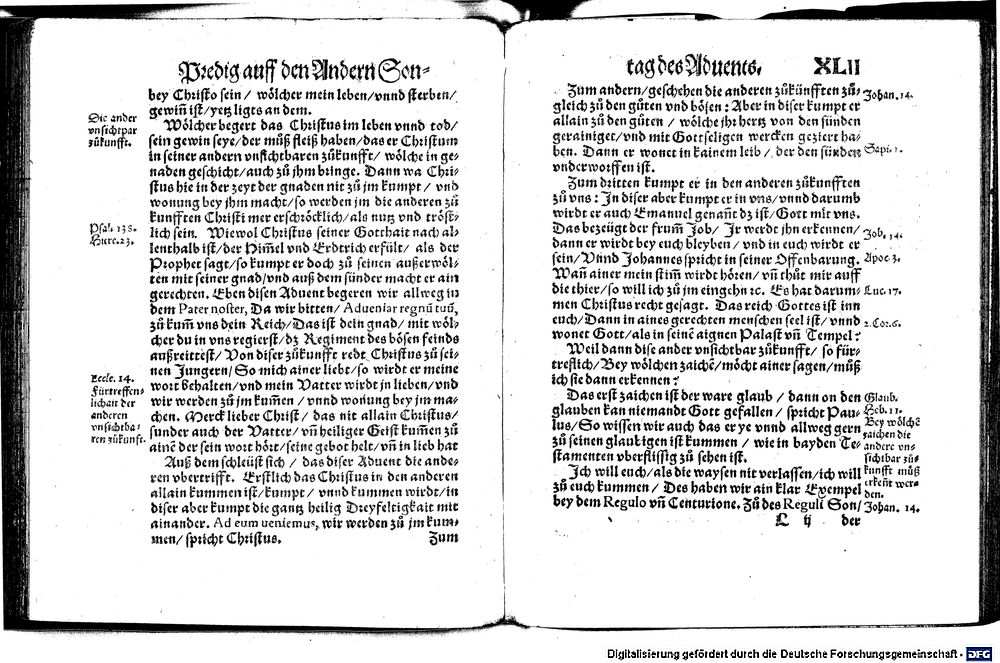 Predig auff den Andern Son-
bey Christo sein / wölcher mein leben / vnnd sterben /
gewiñ ist / yetz ligts an dem.
Wölcher begert das Christus im leben vnnd tod /
sein gewin seye / der můß fleiß haben / das er Christum
in seiner andern vnsichtbaren zůkunfft / wölche in ge-
naden geschicht / auch zů jhm bringe. Dann wa Chri-
stus hie in der zeyt der gnaden nit zů jm kumpt / vnd
wonung bey jhm macht / so werden jm die anderen zů
kunfften Christi mer erschröcklich / als nutz vnd tröst-
lich sein. Wiewol Christus seiner Gotthait nach al-
lenthalb ist / der Him̃el vnd Erdtrich erfült / als der
Prophet sagt / so kumpt er doch zů seinen außerwöl-
ten mit seiner gnad / vnd auß dem sünder macht er ain
gerechten. Eben disen Aduent begeren wir allweg in
dem Pater noster, Da wir bitten / Adueniat regnũ tuũ,
zů kum̃ vns dein Reich / Das ist dein gnad / mit wöl-
cher du in vns regierst / dz Regiment des bösen feinds
außreittest / Von diser zůkunfft redt Christus zů sei-
nen Jungern / So mich ainer liebt / so wirdt er meine
wort behalten / vnd mein Vatter wirdt jn lieben / vnd
wir werden zů jm kum̃en / vnnd wonung bey jm ma-
chen. Merck lieber Christ / das nit allain Christus /
sunder auch der Vatter / vñ heiliger Geist kum̃en zů
ainẽ der sein wort hört / seine gebot helt / vñ in lieb hat
Auß dem schleüst sich / das diser Aduent die ande-
ren vbertrifft. Erstlich das Christus in den anderen
allain kummen ist / kumpt / vnnd kummen wirdt / in
diser aber kumpt die gantz heilig Dreyfeltigkait mit
ainander. Ad eum veniemus, wir werden zů jm kum-
men / spricht Christus.
Zum
Die ander
vnsichtpar
zůkunfft.
Psal. 138.
Hiere. 23.
Eccle. 14.
Fürtreffen-
lichait der
anderen
vnsichtba-
ren zůkunft.
tag des Aduents. XLII
Zum andern / geschehen die anderen zůkünfften zů-
gleich zů den gůten vnd bösen : Aber in diser kumpt er
allain zů den gůten / wölche jhr hertz von den sünden
gerainiget / vnd mit Gottseligen wercken geziert ha-
ben. Dann er wonet in kainem leib / der den sünden
vnderworffen ist.
Zum dritten kumpt er in den anderen zůkunfften
zů vns : In diser aber kumpt er in vns / vnnd darumb
wirdt er auch Emanuel genañt dz ist / Gott mit vns.
Das bezeügt der frum̃ Job / Ir werdt jhn erkennen /
dann er wirdt bey euch bleyben / vnd in euch wirdt er
sein / Vnnd Johannes spricht in seiner Offenbarung.
Wañ ainer mein stim̃ wirdt hören / vñ thůt mir auff
die thier / so will ich zů jm eingehn ꝛc. Es hat darum-
men Christus recht gesagt. Das reich Gottes ist inn
euch / Dann in aines gerechten menschen seel ist / vnnd
wonet Gott / als in seinẽ aignen Palast vñ Tempel :
Weil dann dise ander vnsichtbar zůkunfft / so für-
treflich / Bey wölchen zaichẽ / möcht ainer sagen / můß
ich sie dann erkennen ?
Das erst zaichen ist der ware glaub / dann on den
glauben kan niemandt Gott gefallen / spricht Pau-
lus / So wissen wir auch das er ye vnnd allweg gern
zů seinen glaubigen ist kummen / wie in bayden Te-
stamenten vberflissig zů sehen ist.
Ich will euch / als die waysen nit verlassen / ich will
zů euch kummen / Des haben wir ain klar Exempel
bey dem Regulo vñ Centurione. Zů des Reguli Son /
L ij der
Johan. 14.
Sapi. 1.
Job. 14.
Apoc. 3.
Luc. 17.
2. Cor. 6.
Glaub.
Heb. 11.
Bey wölchẽ
zaichen die
andere vn-
sichtbar zů-
kunfft můß
erkeñt wer-
den.
Johan. 14.
Digitalisierung gefördert durch die Deutsche Forschungsgemeinschaft - DFG